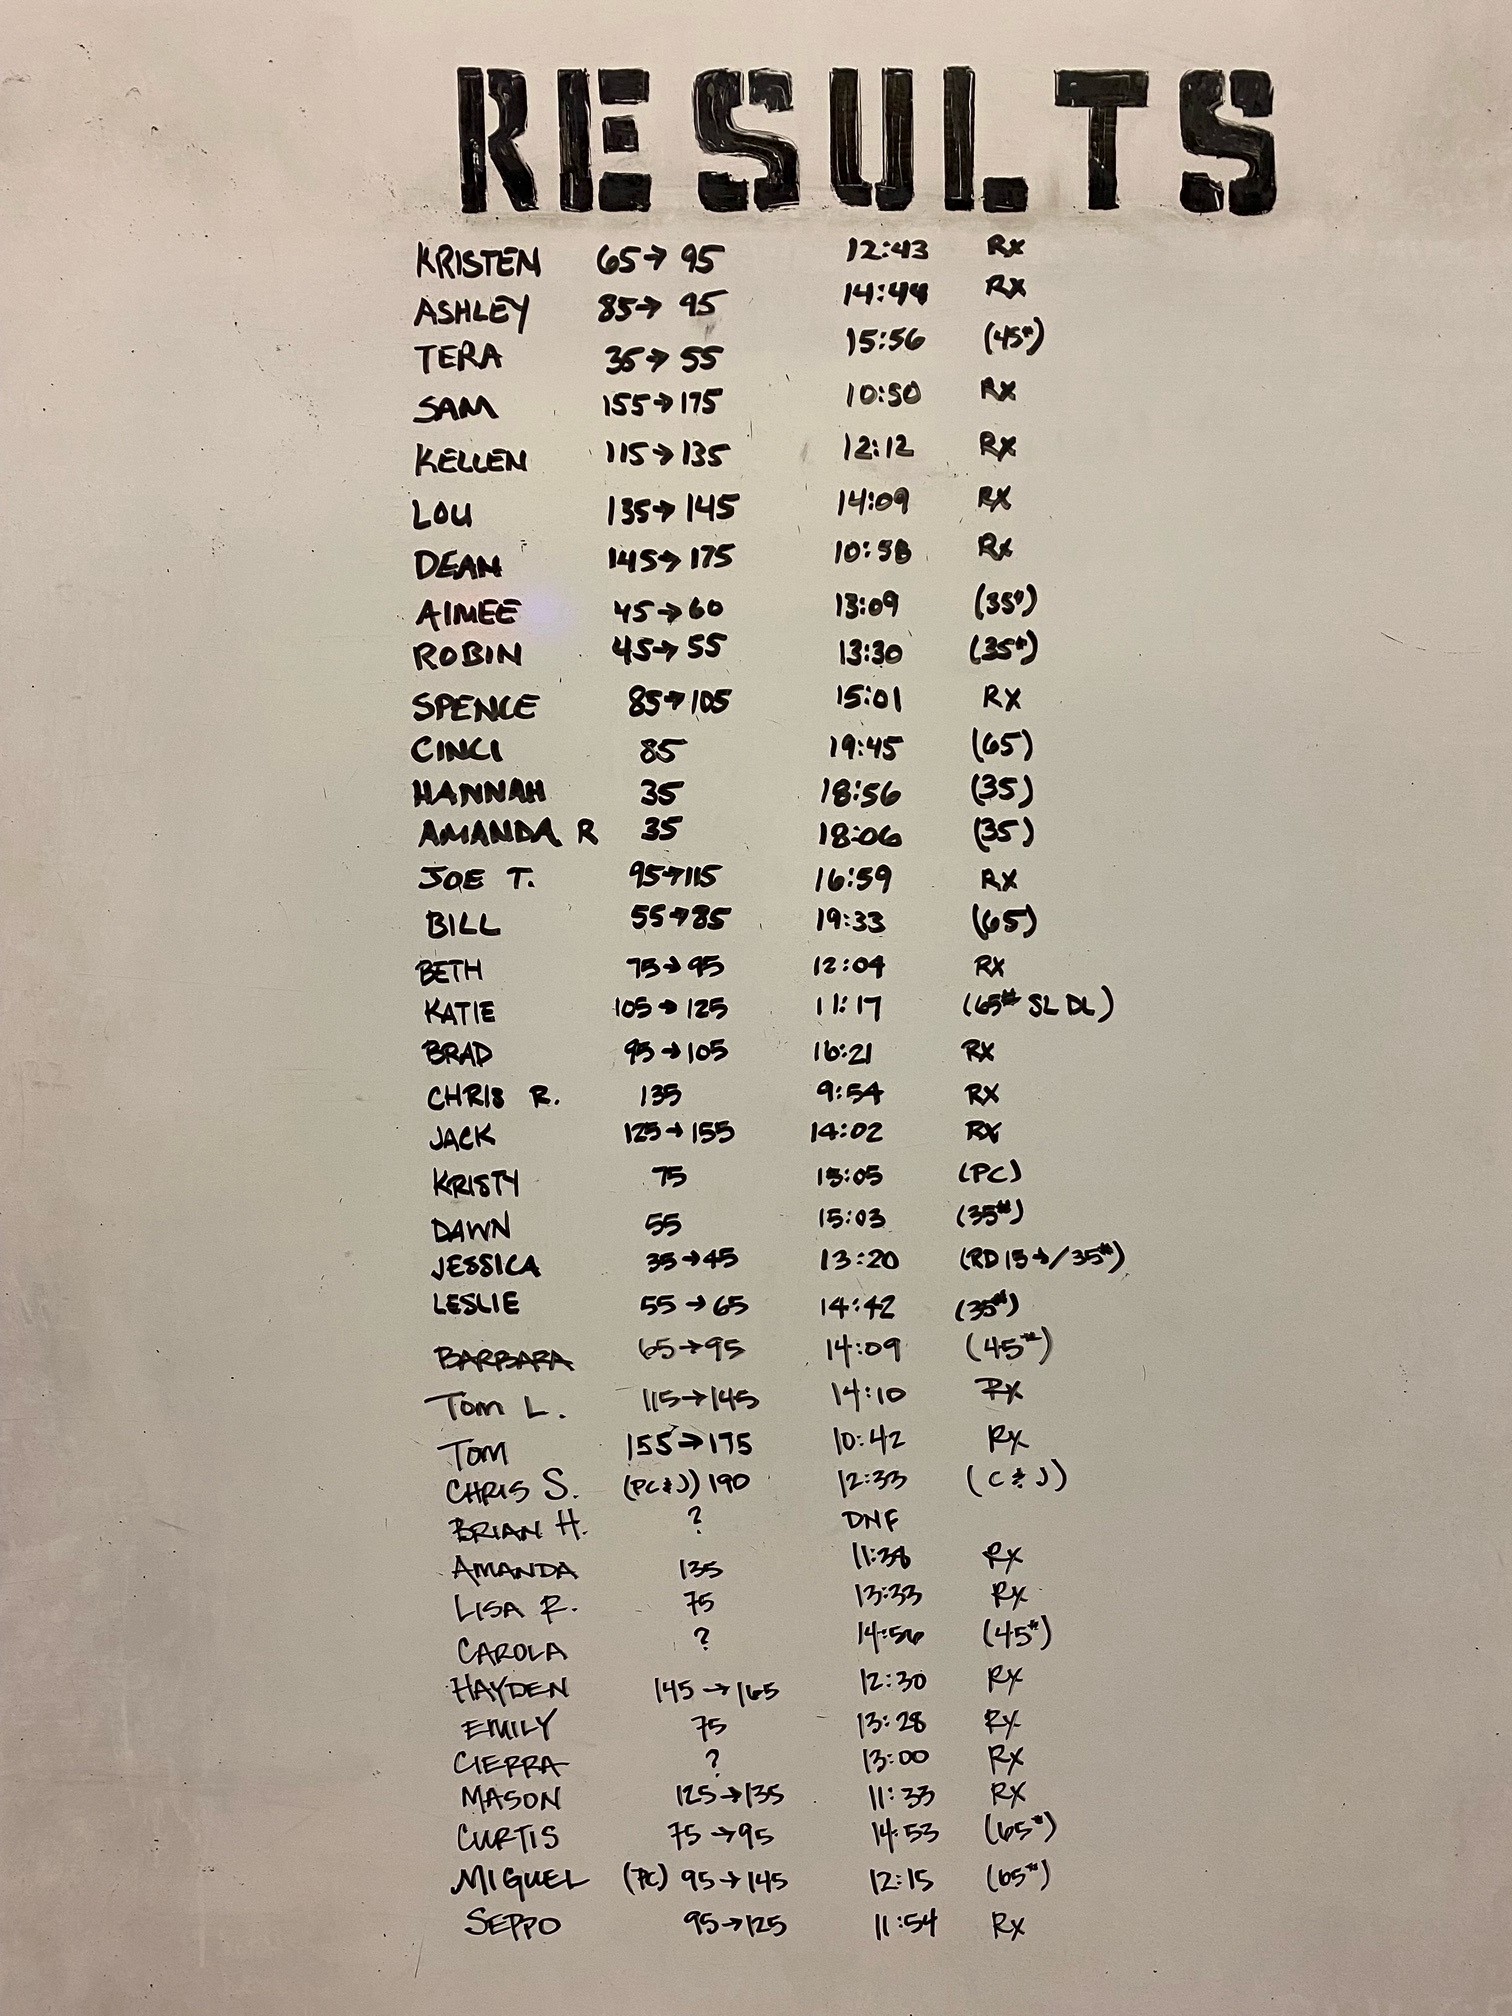 RESULTS
KRISTEN 65→95 12:43 Rx
ASHLEY 85→95 14:44 Rx
TERA 35→55 15:56 (45#)
SAM 155→175 10:50 Rx
KELLEN 115→135 12:12 Rx
LOU 135→145 14:09 RX
DEAN 145→175 10:58 Rx
AIMEE 45→60 13:09 (35#)
ROBIN 45→55 13:30 (35#)
SPENCE 85→105 15:01 RX
CINCI 85 19:45 (65)
HANNAH 35 18:56 (35)
AMANDA R 35 18:06 (35)
JOE T. 95→115 16:59 RX
BILL 55→85 19:33 (65)
BETH 75→95 12:04 RX
KATIE 105→125 11:17 (65# SL DL)
BRAD 95→105 16:21 RX
CHRIS R. 135 9:54 RX
JACK 125→155 14:02 RX
KRISTY 75 15:05 (PC)
DAWN 55 15:03 (35#)
JESSICA 35→45 13:20 (RD 15→/35#)
LESLIE 55→65 14:42 (35#)
BARBARA 65→95 14:09 (45#)
Tom L. 115→145 14:10 Rx
Tom 155→175 10:42 Rx
CHRIS S. (PC&J) 190 12:33 (C & J)
BRIAN H. ? DNF
AMANDA 135 11:38 Rx
LISA R. 75 13:33 Rx
CAROLA ? 14:56 (45#)
HAYDEN 145→165 12:30 Rx
EMILY 75 13:28 Rx
CIERRA ? 13:00 Rx
MASON 125→135 11:33 Rx
CURTIS 75→95 14:53 (65#)
MIGUEL (PC) 95→145 12:15 (65#)
SEPPO 95→125 11:54 Rx